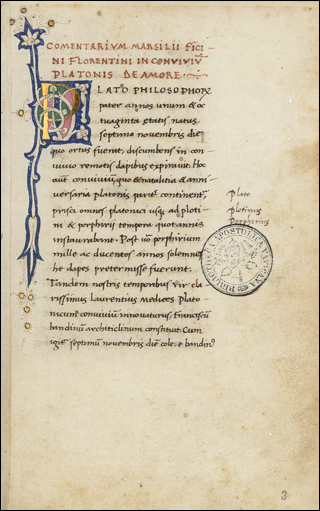 COMENTARIVM MARSILII FICI
NI FLORENTINI IN CONVIVIV̄
PLATONIS DE AMORE
PLATO PHILOSOPHOR
pater annos unum & oc
tuaginta etatis natus
septimo novembris die
quo ortus fuerat, discumbens in con
vivio remotis dapibus expiravit. Hoc
aūt convivium, quo & natalitia & anni
versaria platonis parit̄ continent̄,
prisci omnes platonici usq; ad ploti
ni & porphirii tempora quotannis
instaurabant. Post vō porphirium
mille ac ducentos annos solemnes
he dapes pretermisse fuerunt.
Tandem nostris temporibus vir cla
rissimus Laurentius medices Plato
nicum convivium innovaturus, Franciscū
bandinum architriclinum constituit. Cum
igit̄ septimum novembris diē colere bandinus
Plato
Plotinus
3